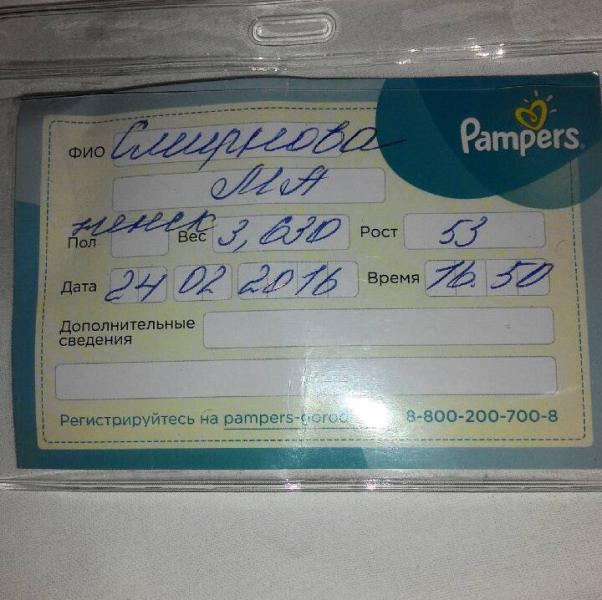 Pampers
ФИО Смирнова
МА
Пол женск Вес 3,630 Рост 53
Дата 24 02 2016 Время 16.50
Дополнительные
сведения
Регистрируйтесь на 8-800-200-700-8